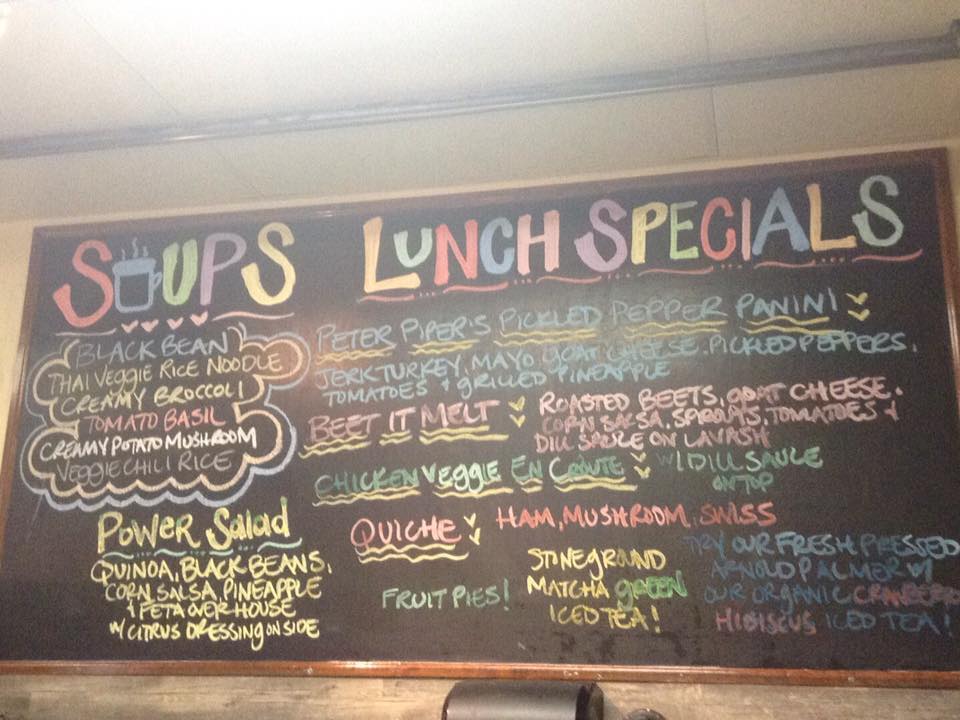 SOUPS
BLACK BEAN
THAI VEGGIE RICE NOODLE
CREAMY BROCCOLI
TOMATO BASIL
CREAMY POTATO MUSHROOM
VEGGIE CHILI RICE
POWER Salad
QUINOA, BLACK BEANS,
CORN SALSA, PINEAPPLE
& FETA OVER HOUSE
W/ CITRUS DRESSING ON SIDE
LUNCH SPECIALS
PETER PIPER'S PICKLED PEPPER PANINI
JERK TURKEY, MAYO, GOAT CHEESE, PICKLED PEPPERS,
TOMATOES & GRILLED PINEAPPLE
BEET IT MELT
ROASTED BEETS, GOAT CHEESE,
CORN SALSA, SPROUTS, TOMATOES &
DILL SAUCE ON LAVASH
CHICKEN VEGGIE EN CROUTE W/ DILL SAUCE
ON TOP
QUICHE HAM, MUSHROOM, SWISS
FRUIT PIES!
STONEGROUND
MATCHA GREEN
ICED TEA!
TRY OUR FRESH PRESSED
ARNOLD PALMER W/
OUR ORGANIC CRANBERRY
HIBISCUS ICED TEA!